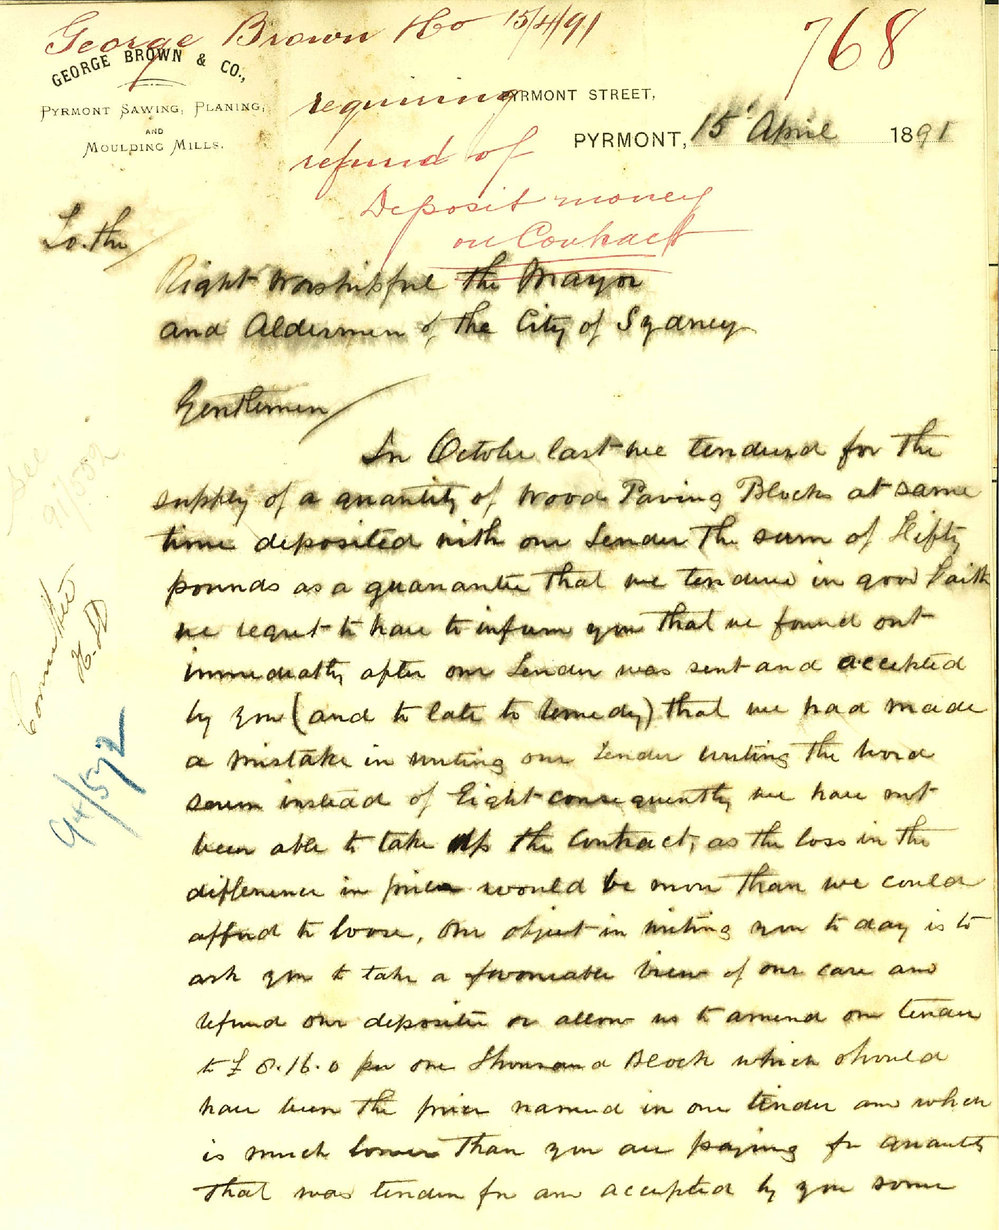 George Brown & Co 15/4/91
768
GEORGE BROWN & CO.,
PYRMONT SAWING, PLANING,
AND
MOULDING MILLS.
requiring
refund of
Deposit money
on Contract
PYRMONT STREET,
PYRMONT, 15 April 1891
To the
Right Worshipful the Mayor
and Aldermen of the City of Sydney
Gentlemen
In October last we tendered for the
supply of a quantity of Wood Paving Blocks at same
time deposited with our Tender the sum of Fifty
pounds as a guarantee that we tendered in good Faith
we regret to have to inform you that we found out
immediately after our Tender was sent and accepted
by you (and to late to remedy) that we had made
a mistake in writing our Tender writing the word
seven instead of Eight consequently we have not
been able to take up the Contract, as the loss in the
difference in price would be more than we could
afford to loose, Our object in writing you to day is to
ask you to take a favourable view of our case and
refund our deposite or allow us to amend our tender
to £8.16.0 per one Thousand Block which should
have been the price named in our tender and which
is much lower than you are paying for quantity
that was tender for and accepted by you some
See
91/502
Committee
94/572